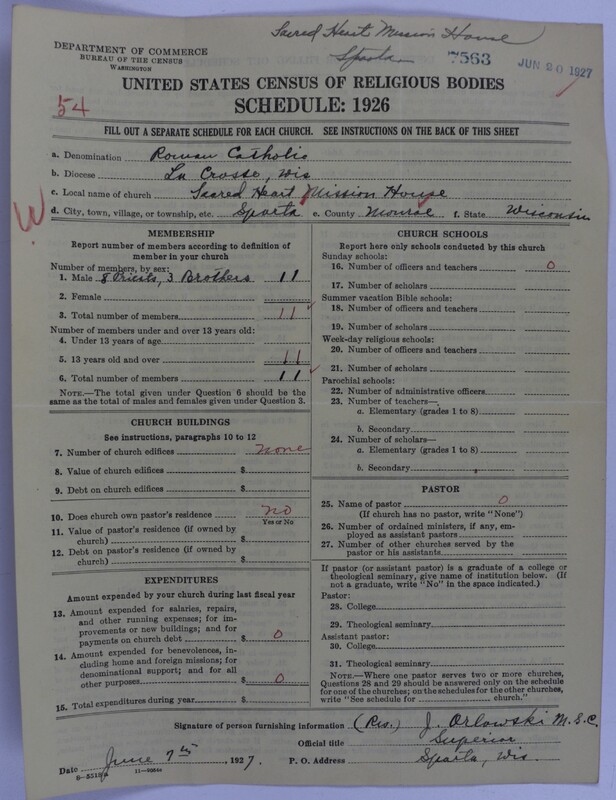 Sacred Heart Mission House
Sparta
7563
JUN 20 1927
DEPARTMENT OF COMMERCE
BUREAU OF THE CENSUS
WASHINGTON
UNITED STATES CENSUS OF RELIGIOUS BODIES
SCHEDULE: 1926
54
FILL OUT A SEPARATE SCHEDULE FOR EACH CHURCH. SEE INSTRUCTIONS ON THE BACK OF THIS SHEET
a. Denomination Roman Catholic
b. Diocese La Crosse, Wis
c. Local name of church Sacred Heart Mission House
d. City, town, village, or township, etc. Sparta e. County Monroe f. State Wisconsin
W.
MEMBERSHIP
Report number of members according to definition of
member in your church
Number of members, by sex:
1. Male 8 Priests, 3 Brothers 11
2. Female
3. Total number of members 11
Number of members under and over 13 years old:
4. Under 13 years of age
5. 13 years old and over 11
6. Total number of members 11
NOTE.—The total given under Question 6 should be
the same as the total of males and females given under Question 3.
CHURCH BUILDINGS
See instructions, paragraphs 10 to 12
7. Number of church edifices none
8. Value of church edifices $
9. Debt on church edifices $
10. Does church own pastor's residence no
Yes or No
11. Value of pastor's residence (if owned by
church) $
12. Debt on pastor's residence (if owned by
church) $
EXPENDITURES
Amount expended by your church during last fiscal year
13. Amount expended for salaries, repairs,
and other running expenses; for im-
provements or new buildings; and for
payments on church debt $ 0
14. Amount expended for benevolences, in-
cluding home and foreign missions; for
denominational support; and for all
other purposes $ 0
15. Total expenditures during year $
CHURCH SCHOOLS
Report here only schools conducted by this church
Sunday schools:
16. Number of officers and teachers 0
17. Number of scholars
Summer vacation Bible schools:
18. Number of officers and teachers
19. Number of scholars
Week-day religious schools:
20. Number of officers and teachers
21. Number of scholars
Parochial schools:
22. Number of administrative officers
23. Number of teachers—
a. Elementary (grades 1 to 8)
b. Secondary
24. Number of scholars—
a. Elementary (grades 1 to 8)
b. Secondary
PASTOR
25. Name of pastor 0
(If church has no pastor, write "None")
26. Number of ordained ministers, if any, em-
ployed as assistant pastors
27. Number of other churches served by the
pastor or his assistants
If pastor (or assistant pastor) is a graduate of a college or
theological seminary, give name of institution below. (If
not a graduate, write "No" in the space indicated.)
Pastor:
28. College
29. Theological seminary
Assistant pastor:
30. College
31. Theological seminary
NOTE.—Where one pastor serves two or more churches,
Questions 28 and 29 should be answered only on the schedule
for one of the churches; on the schedules for the other churches,
write "See schedule for church."
Signature of person furnishing information (Rev.) J. Orlowski M.S.C.
Official title Superior
Date June 7th, 1927. P. O. Address Sparta, Wis.